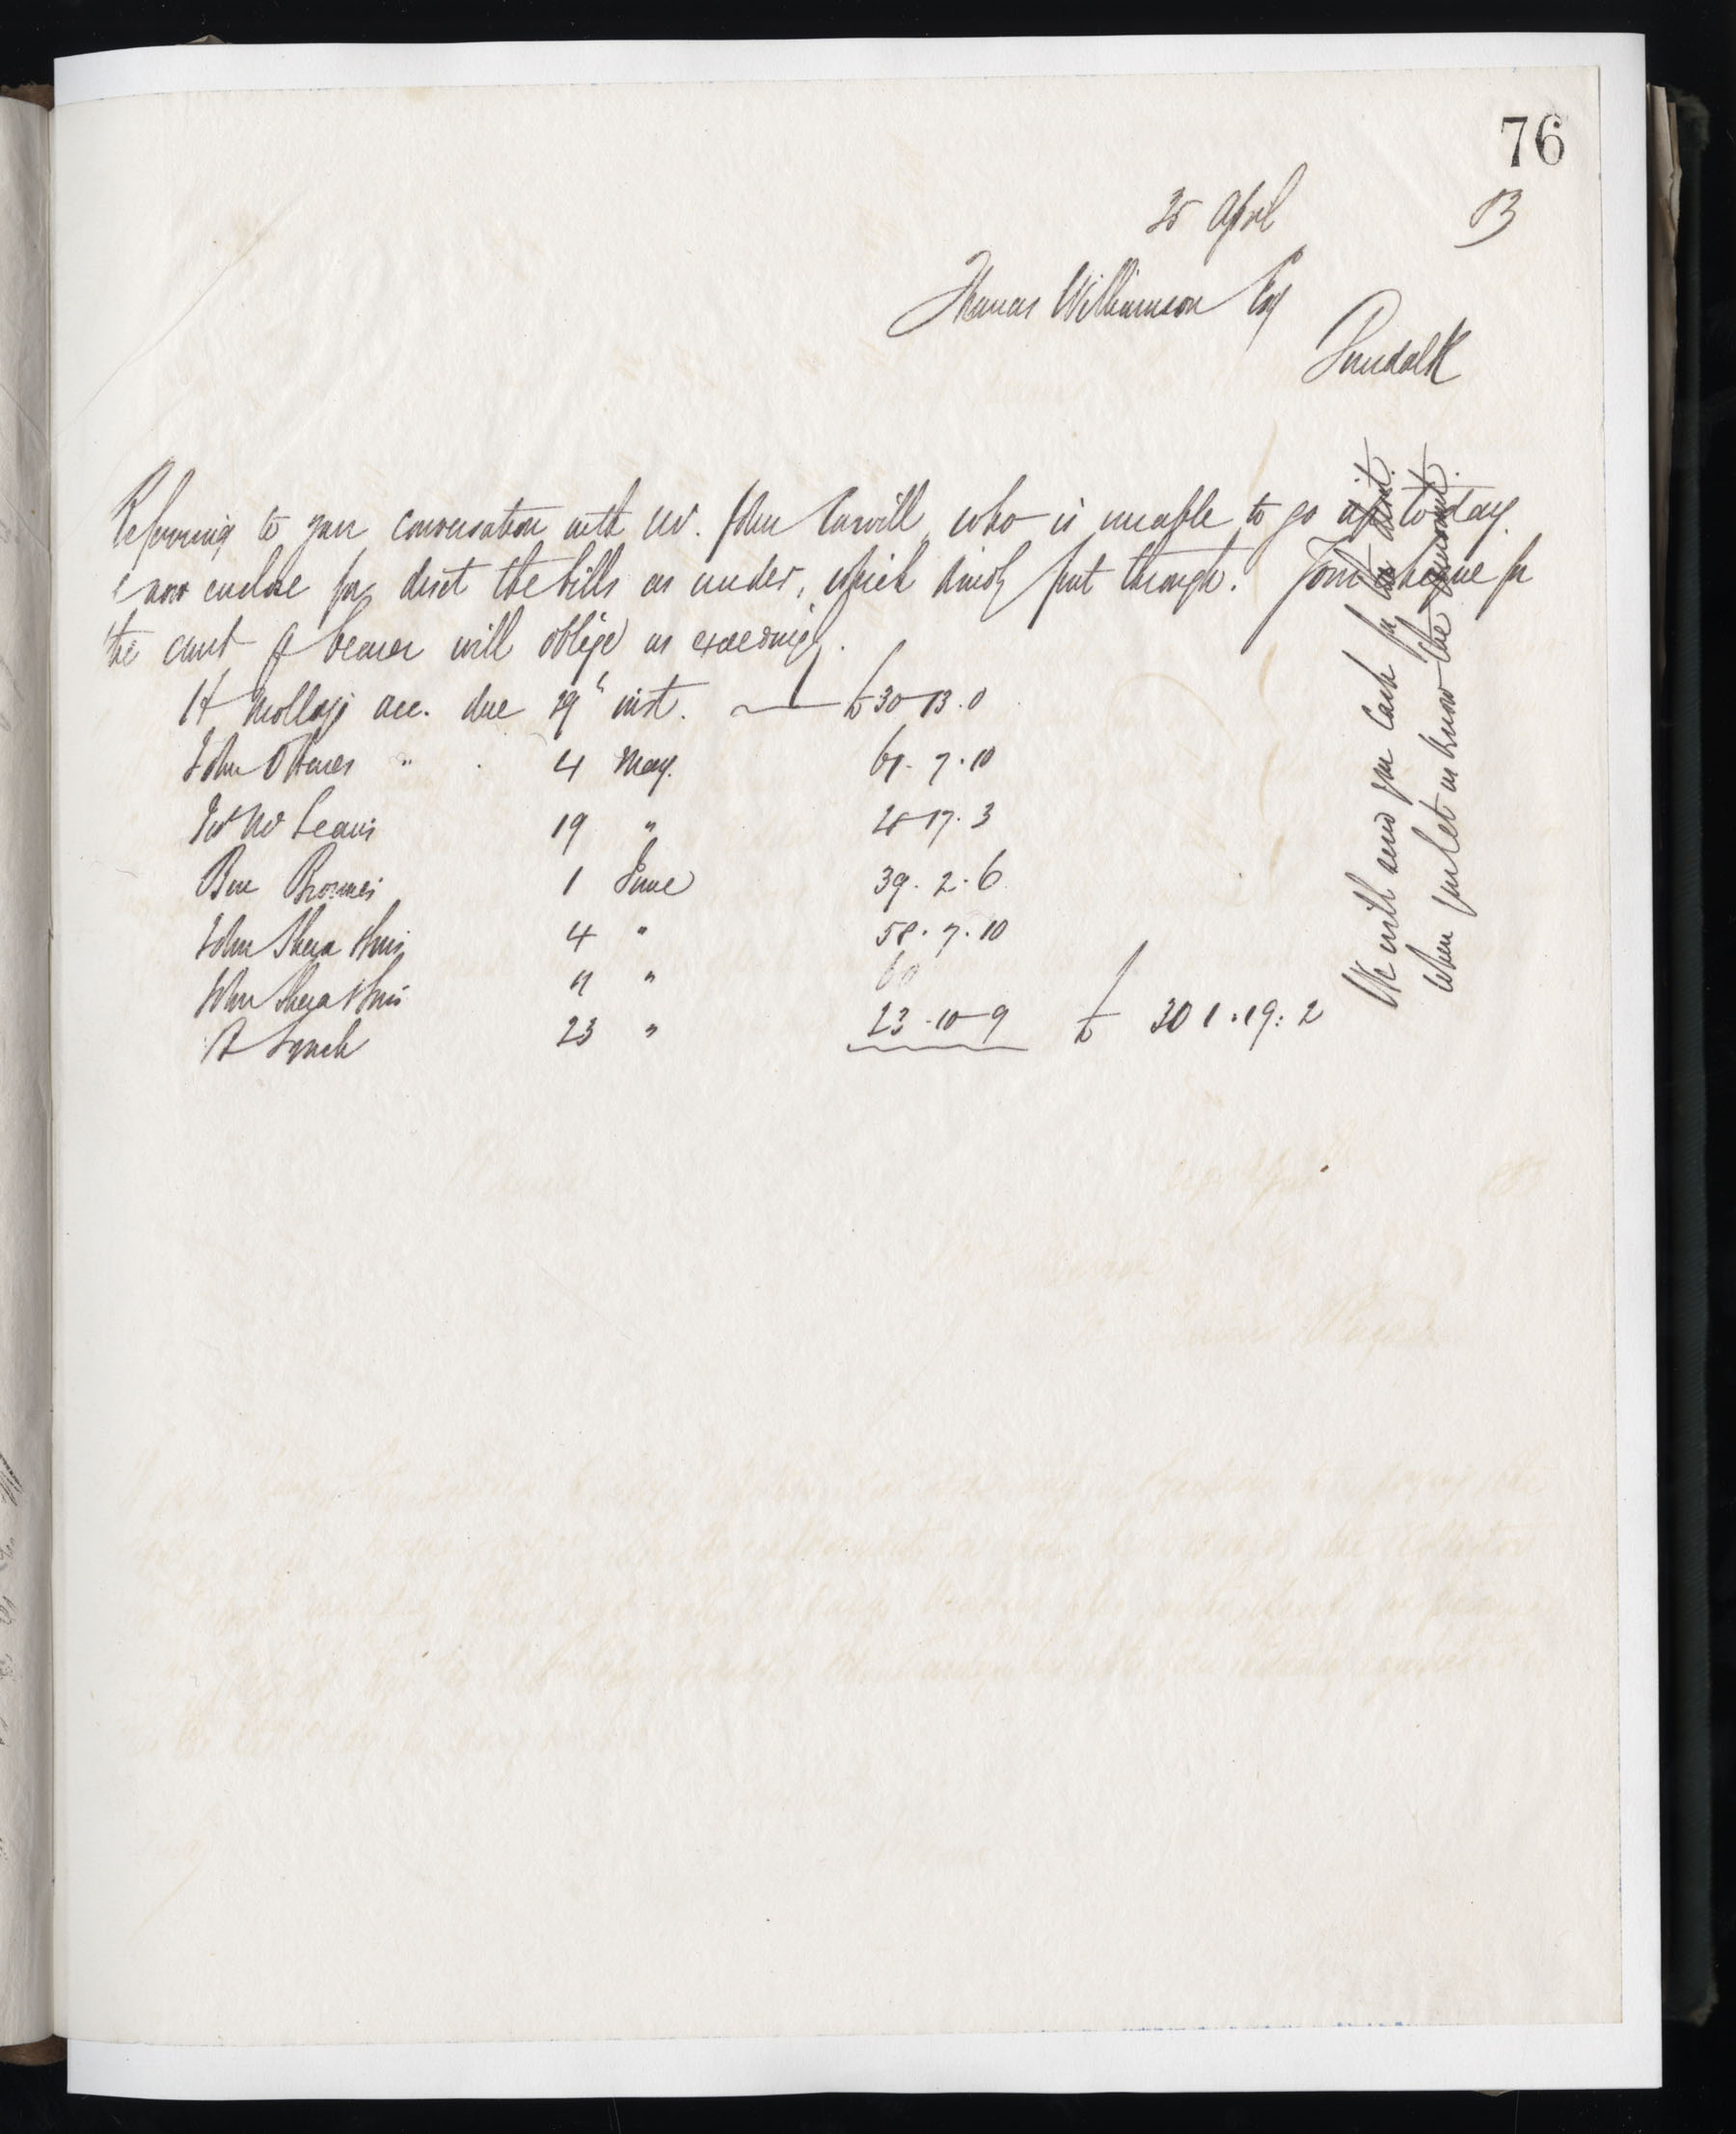 76
25 April 83
Thomas Williamson Esq
Dundalk
Referring to your conversation with Mr. John Carvill who is unable to go up today.
I now enclose for disct the bills as under, which kindly put through. Your cheque for
the amt of bearer will oblige us exceedingly.
H Molloy's acc. due 29" inst. £30-13.0
John O'Hares " . 4 May. 61-7.10
19 " 28-17.3
1 June 39.2.6
John Shera & Sons 4 " 58.7.10
John Shera & Sons 11 " 60
P Lynch 23 " 23-10-9 £ 301.19:2
We will send you Cash for the disct.
when you let us know the amount.